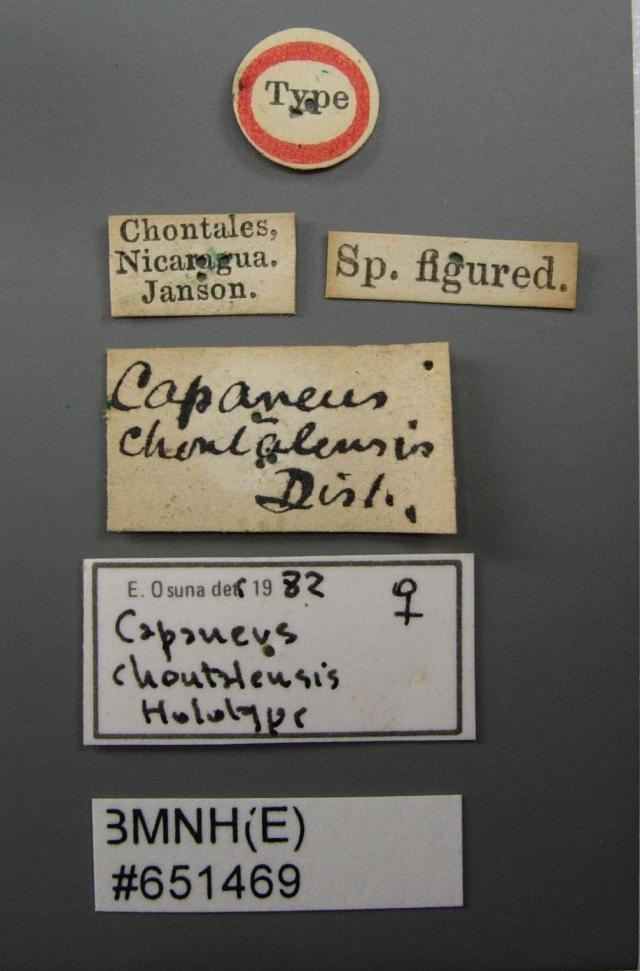 Type
Chontales,
Nicaragua.
Janson.
Sp. figured.
Capaneus
chontalensis
Dist.
E. Osuna det. 1982 ♀
Capaneus
chontalensis
Holotype
BMNH(E)
#651469